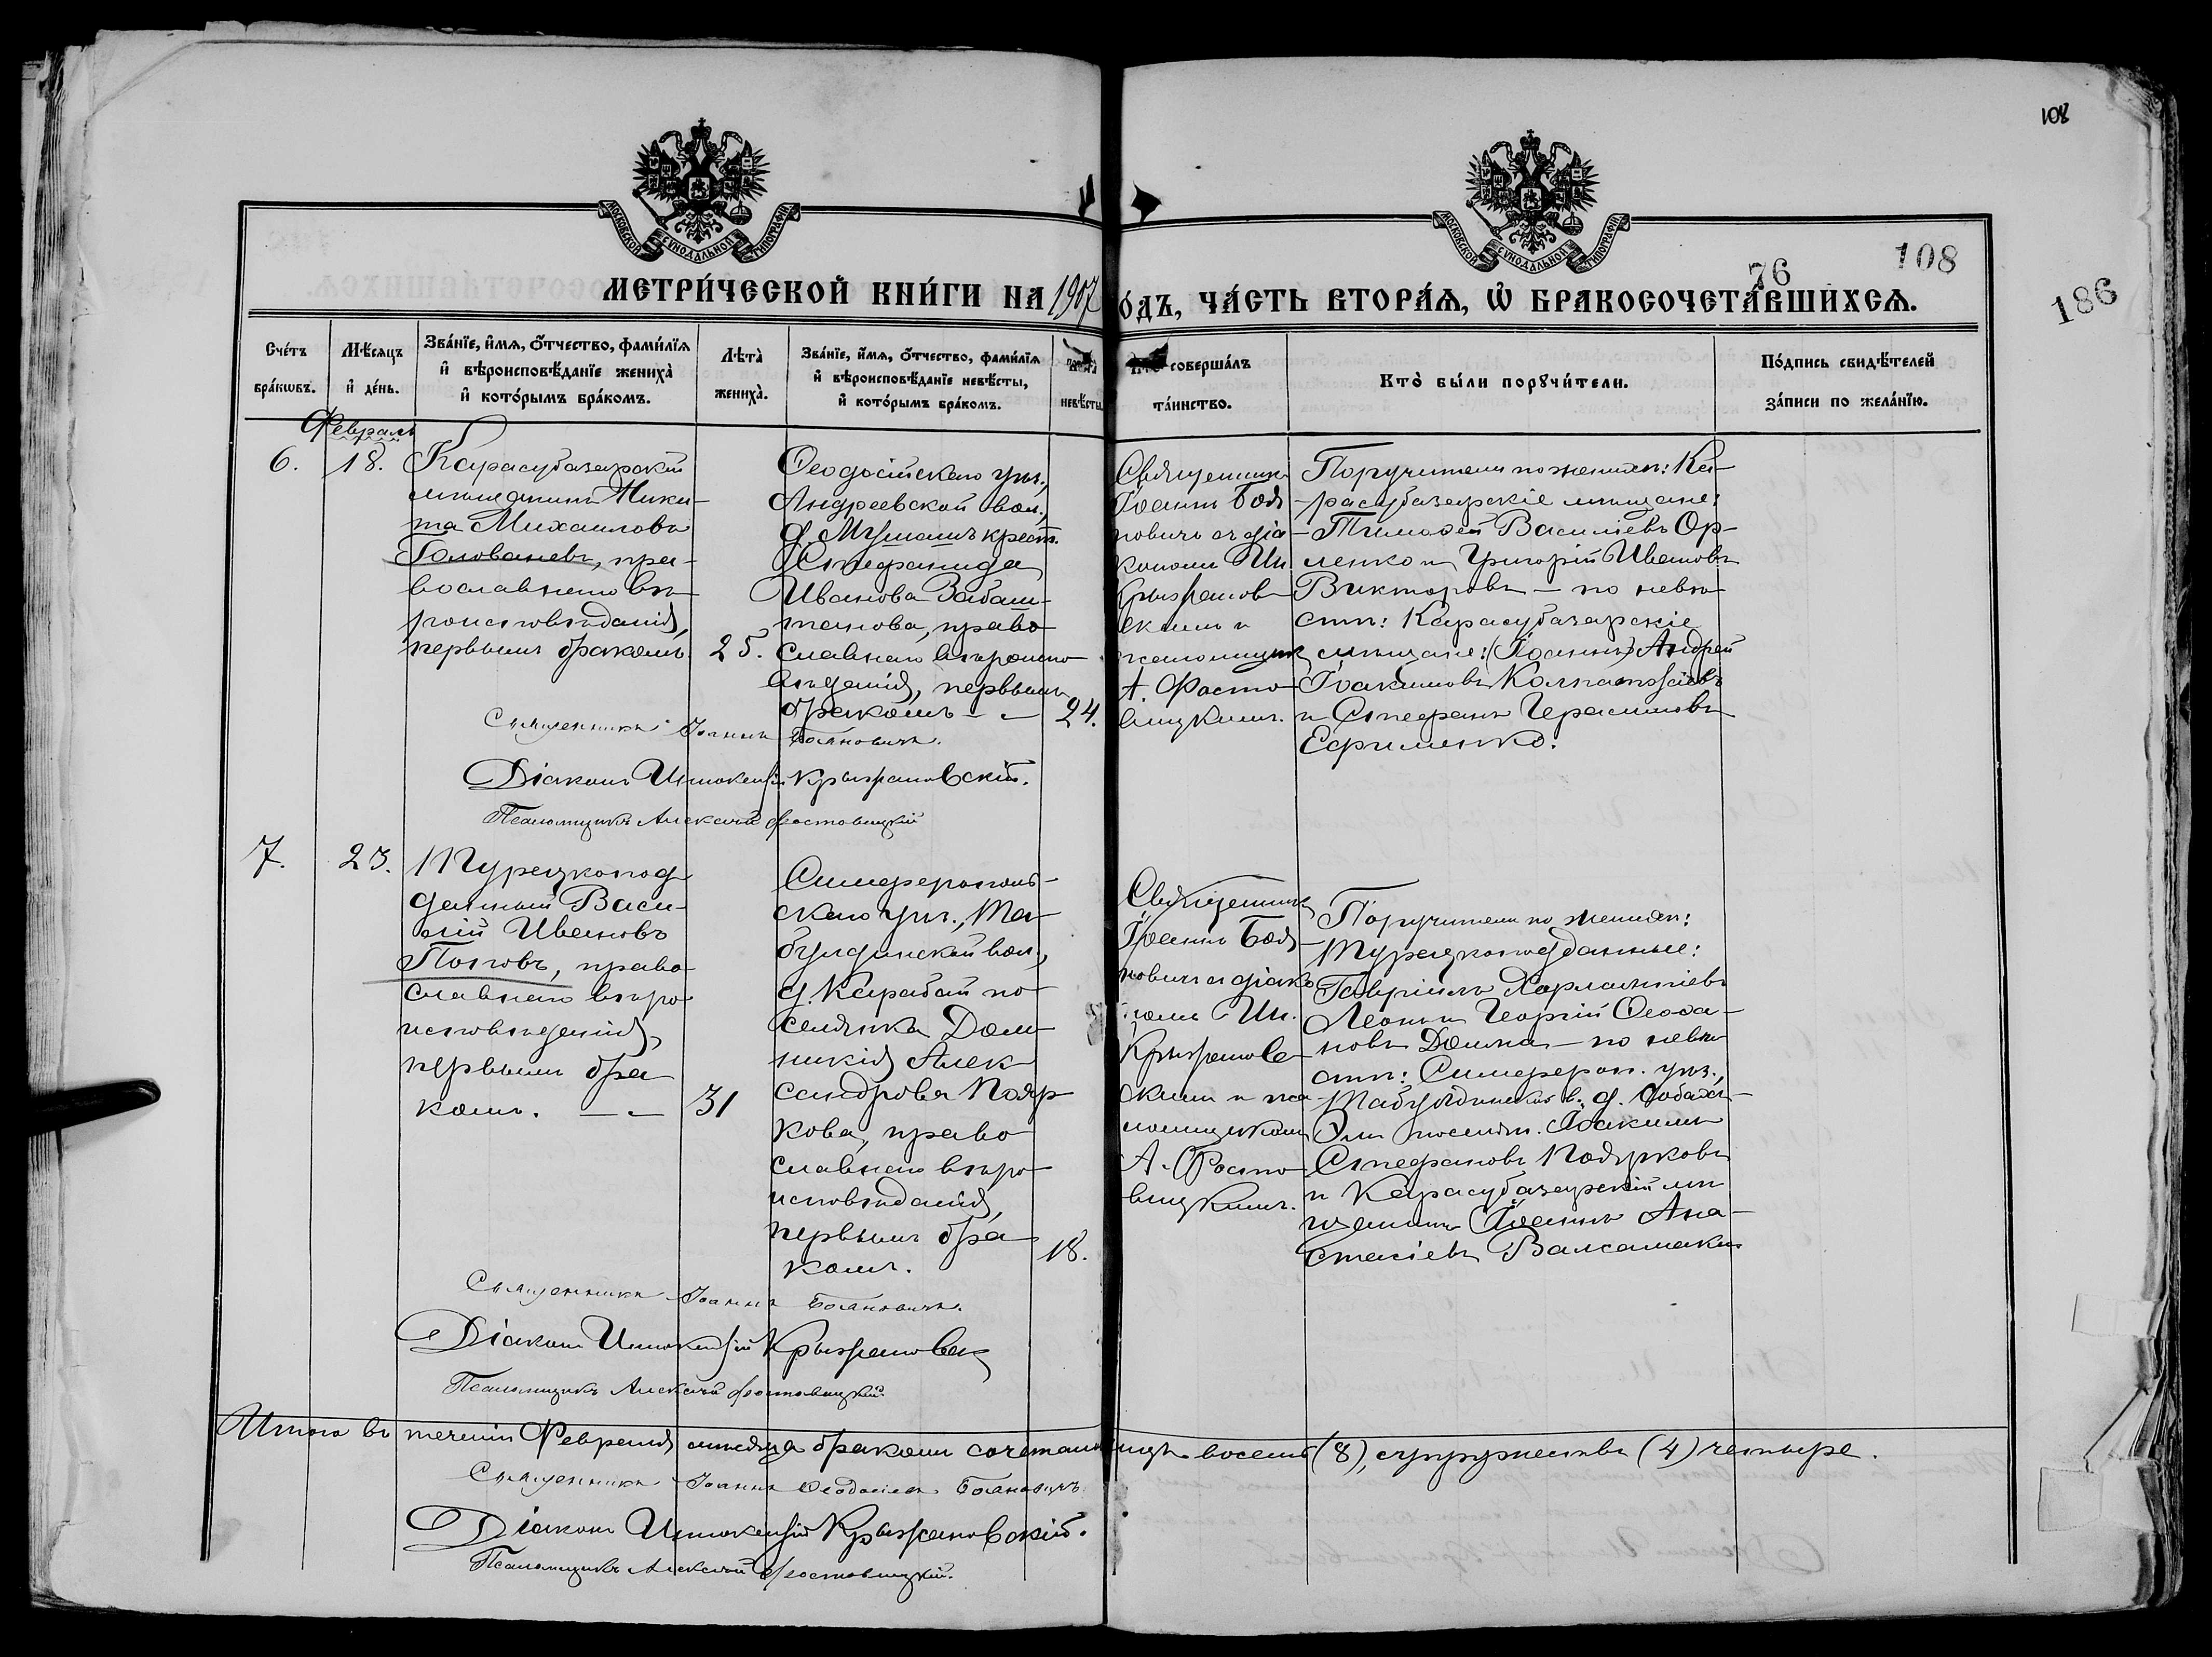 108
МОСКОВСКОЙ СУНОДАЛЬНОЙ ТИПОГРАФІИ
МОСКОВСКОЙ СУНОДАЛЬНОЙ ТИПОГРАФІИ
76
108
186
МЕТРИ́ЧЕСКОЙ КНИ́ГИ НА 1907
О́ДЪ, ЧА́СТЬ ВТОРА́Я, Ѡ҆ БРАКОСОЧЕТА́ВШИХСЯ.
Сче́тъ бра́кѡвъ.
Мѣ́сяцъ и҆ де́нь.
Зва́нїе, и҆́мя, о҆́тчество, фами́лїя
и҆ вѣроисповѣ́данїе жениха̀
и҆ кото́рымъ бра́комъ.
Лѣта̀ жениха̀.
Зва́нїе, и҆́мя, о҆́тчество, фами́лїя
и҆ вѣроисповѣ́данїе невѣ́сты,
и҆ кото́рымъ бра́комъ.
невѣ́сты.
соверша́лъ
та́инство.
Кто̀ бы́ли порꙋчи́тели.
По́дпись свидѣ́телей
за́писи по жела́нїю.
Февраль
6.
18.
Карасубазарскій
мѣщанинъ Ники-
та Михаиловъ
Голованевъ, пра-
вославнаго вѣ-
роисповѣданія,
первымъ бракомъ.
25.
Ѳеодосійскаго уѣз.,
Андреевской вол.,
д. Мушашъ крест.
Стефанида
Иванова Забаш-
танова, право-
славнаго вѣроиспо-
вѣданія, первымъ
бракомъ — —
24.
Священникъ
Іоаннъ Боя
новичъ съ діа
кономъ Ин.
Крыжанов
скимъ и
псаломщик
А. Фосто-
вицкимъ.
Поручители по женихѣ: Ка-
-расубазарскіе мѣщане:
-Тимофей Василіевъ Ор-
ленко и Григорій Ивановъ
Викторовъ — по невѣ-
стѣ: Карасубазарскіе
мѣщане: (Іоаннъ) Андрей
Іоакимовъ Колпаковъ
и Стефанъ Герасимовъ
Ефименко.
Священникъ Іоаннъ Бояновичъ.
Діаконъ Иннокентій Крыжановскій.
Псаломщикъ Алексѣй Фостовицкій
7.
23.
Турецкопод
данный Васи-
лій Ивановъ
Поповъ, право-
славнаго вѣро-
исповѣданія,
первымъ бра
комъ. — —
31
Симферополь-
скаго уѣз., Та-
булдинской вол.,
д. Карабай по-
селянка Дом-
никія Алек
сандрова Пояр
кова, право-
славнаго вѣро-
исповѣданія,
первымъ бра-
комъ.
18.
Священникъ
Іоаннъ Боя-
новичъ съ діако
номъ Ин.
Крыжанов-
скимъ и пса
ломщикомъ
А. Фосто-
вицкимъ.
Поручители по женихѣ:
Турецкоподданные:
Гавріилъ Харлампіевъ
Леонъ и Георгій Ѳеофа-
новъ Домна — по невѣ-
стѣ: Симфероп. уѣз.,
Табулдинской в., д.
Эли поселян. Іоакимъ
Стефановъ Поярковъ
и Карасубазарскій мѣ
щанинъ Іоаннъ Ана-
стасіевъ Валсамаки
Священникъ Іоаннъ Бояновичъ.
Діаконъ Иннокентій Крыжановск
Псаломщикъ Алексѣй Фостовицкій
Итого въ теченіи Февраля мѣсяца бракомъ сочетали лицъ восемь (8), супружествъ (4) четыре.
Священникъ Іоаннъ Ѳеодосіевъ Бояновичъ
Діаконъ Иннокентій Крыжановскій.
Псаломщикъ Алексѣй Фостовицкій.